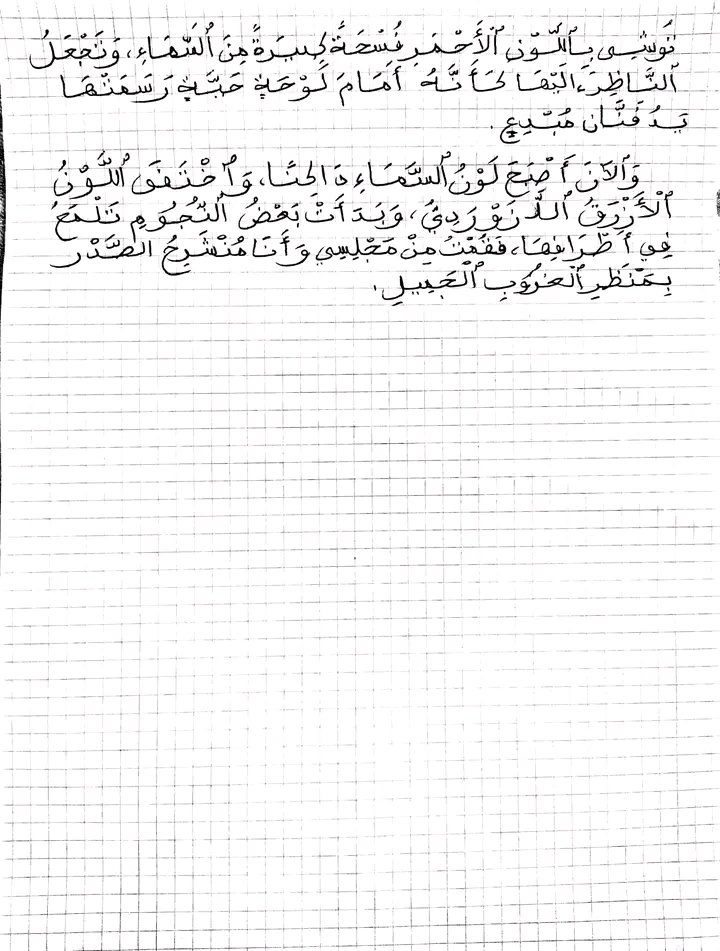 تُوشِي بِٱللَّوْنِ ٱلْأَحْمَرِ فُسْحَةً كَبِيرَةً مِنَ ٱلسَّمَاءِ، وَتَجْعَلُ
ٱلنَّاظِرَ إِلَيْهَا كَأَنَّهُ أَمَامَ لَوْحَةٍ حَيَّةٍ رَسَمَتْهَا
يَدُ فَنَّان مُبْدِعٍ.
وَٱلآنَ أَصْبَحَ لَوْنُ ٱلسَّمَاءِ دَاكِنًا، وَٱخْتَفَى ٱللَّوْنُ
ٱلْأَزْرَقُ ٱللَّازَوَرْدِيُّ، وَبَدَأَتْ بَعْضُ ٱلنُّجُومِ تَلْمَعُ
فِي أَطْرَافِهَا، فَقُمْتُ مِنْ مَجْلِسِي وَأَنَا مُنْشَرِحُ الصَّدْرِ
بِمَنْظَرِ ٱلْغُرُوبِ ٱلْجَمِيلِ.